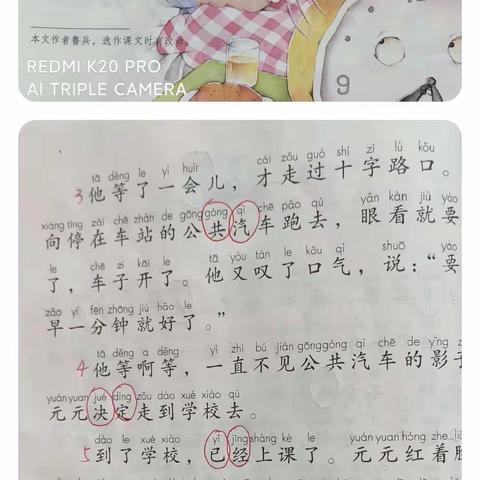 本文作者鲁兵，选作课文时有改动。
REDMI K20 PRO
AI TRIPLE CAMERA
9
tā děng le yí huìr cái zǒu guò shí zì lù kǒu
3他等了一会儿，才走过十字路口。
xiàng tíng zài chē zhàn de gōng gòng qì chē pǎo qù yǎn kàn jiù yào
向停在车站的公共汽车跑去，眼看就要
le chē zi kāi le tā yòu tàn le kǒu qì shuō yào
了，车子开了。他又叹了口气，说：“要
zǎo yì fēn zhōng jiù hǎo le
早一分钟就好了。”
tā děng a děng yì zhí bú jiàn gōng gòng qì chē de yǐng
4他等啊等，一直不见公共汽车的影
yuán yuan jué dìng zǒu dào xué xiào qù
元元决定走到学校去。
dào le xué xiào yǐ jīng shàng kè le yuán yuan hóng zhe
5到了学校，已经上课了。元元红着